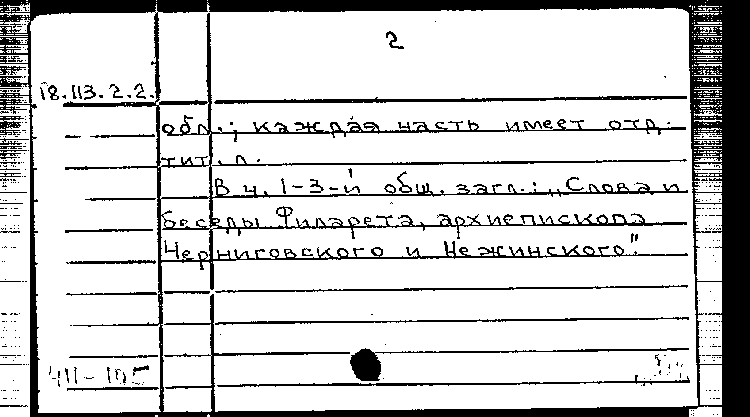 2
18.113.2.2.
обл.; каждая часть имеет отд.
тит. л.
В ч. 1-3-й общ. загл.: „Слова и
беседы Филарета, архиепископа
Черниговского и Нежинского".